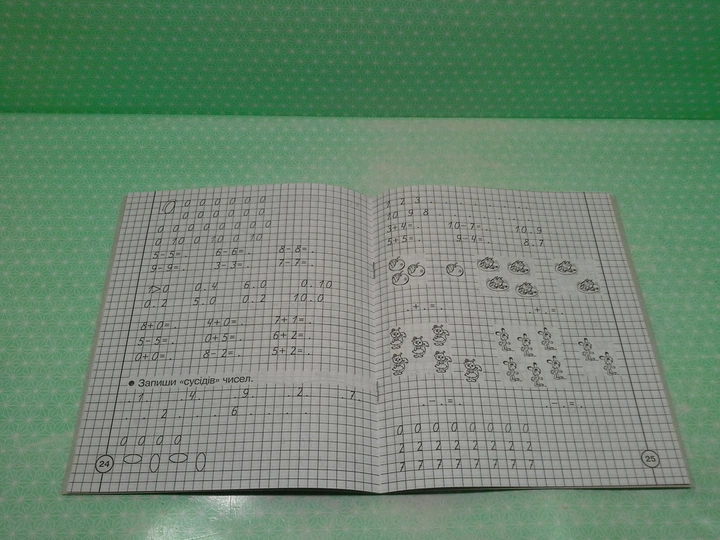 0 0 0 0 0 0 0
0 0 0 0 0 0
0 0 0 0 0 0 0
0 10 0 10 0 10
5-5=. 6-6=. 8-8=.
9-9=. 3-3=. 7-7=.
1>0 0.4 6.0 0.10
0.2 5.0 0.2 10.0
8+0=. 4+0=. 7+1=.
5-5=. 0+5=. 6+2=.
0+0=. 8-2=. 5+2=.
Запиши «сусідів» чисел.
. 1 . . 4 . . 9 . . 2 . . 7 .
. . 2 . . . 6 . . . .
0 0 0 0
24
1 2 3 .
10 9 8 .
3+4=. 10-7=. 10.9
5+5=. 9-4=. 8.7
.+.=. .+.=.
.-.=. .-.=.
0 0 0 0 0 0 0 0
2 2 2 2 2 2 2 2
7 7 7 7 7 7 7 7
25